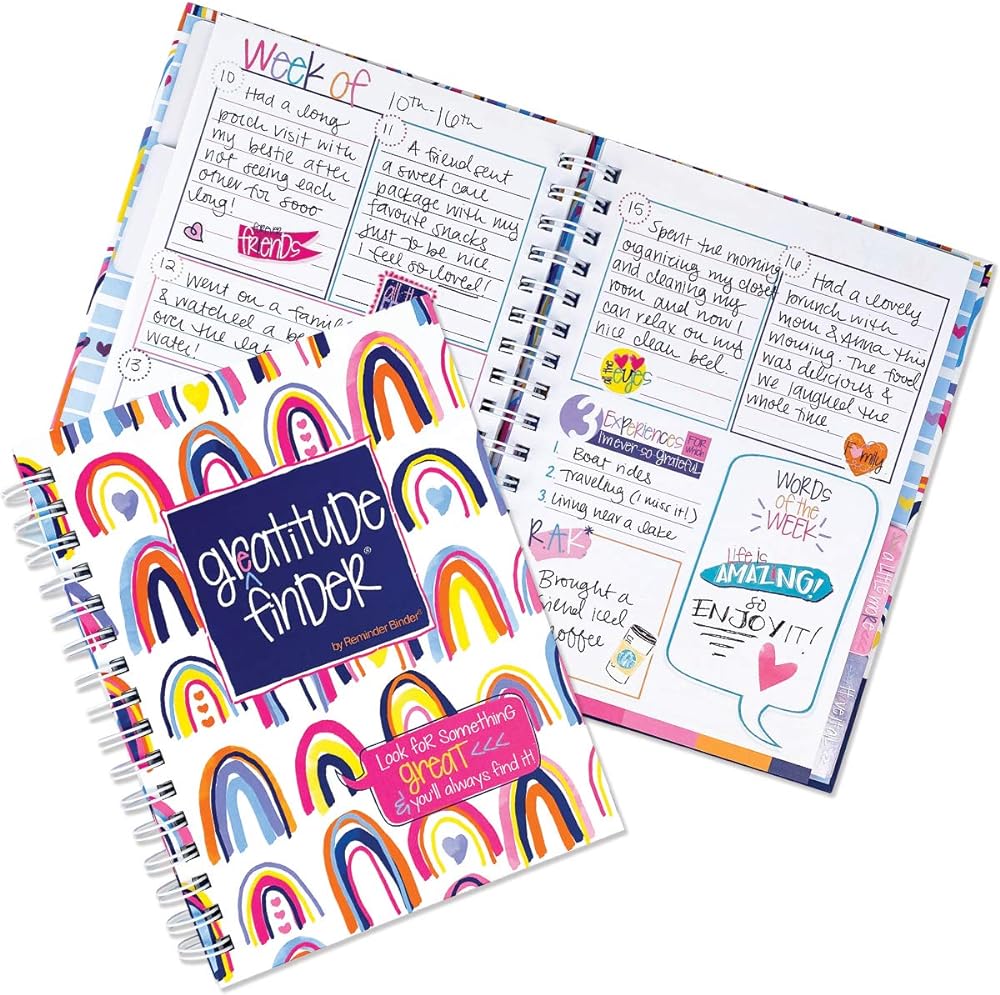 Week of
10th-16th
10
Had a long
porch visit with
my bestie after
not seeing each
other for sooo
long!
forever
friends
11
A friend sent
a sweet care
package with my
favorite snacks
just to be nice.
I feel so loved!
All the
12
Went on a family
& watched a
over the
water!
13
15
Spent the morning
organizing my closet
and cleaning my
room and now I
can relax on my
nice clean bed.
all the
eyes
16
Had a lovely
brunch with
mom & Anna this
morning. The food
was delicious &
we laughed the
whole time.
Family
3 Experiences for which
I'm ever-so-grateful
1. Boat rides
2. Traveling (I miss it!)
3. Living near a lake
R.A.K*
Brought a
friend iced
coffee
WORDS
of the
WEEK
Life is
AMAZING!
so
ENJOY IT!
a little more
greatitude
finder®
by Reminder Binder®
Look for something
great <<<
& you'll always find it!